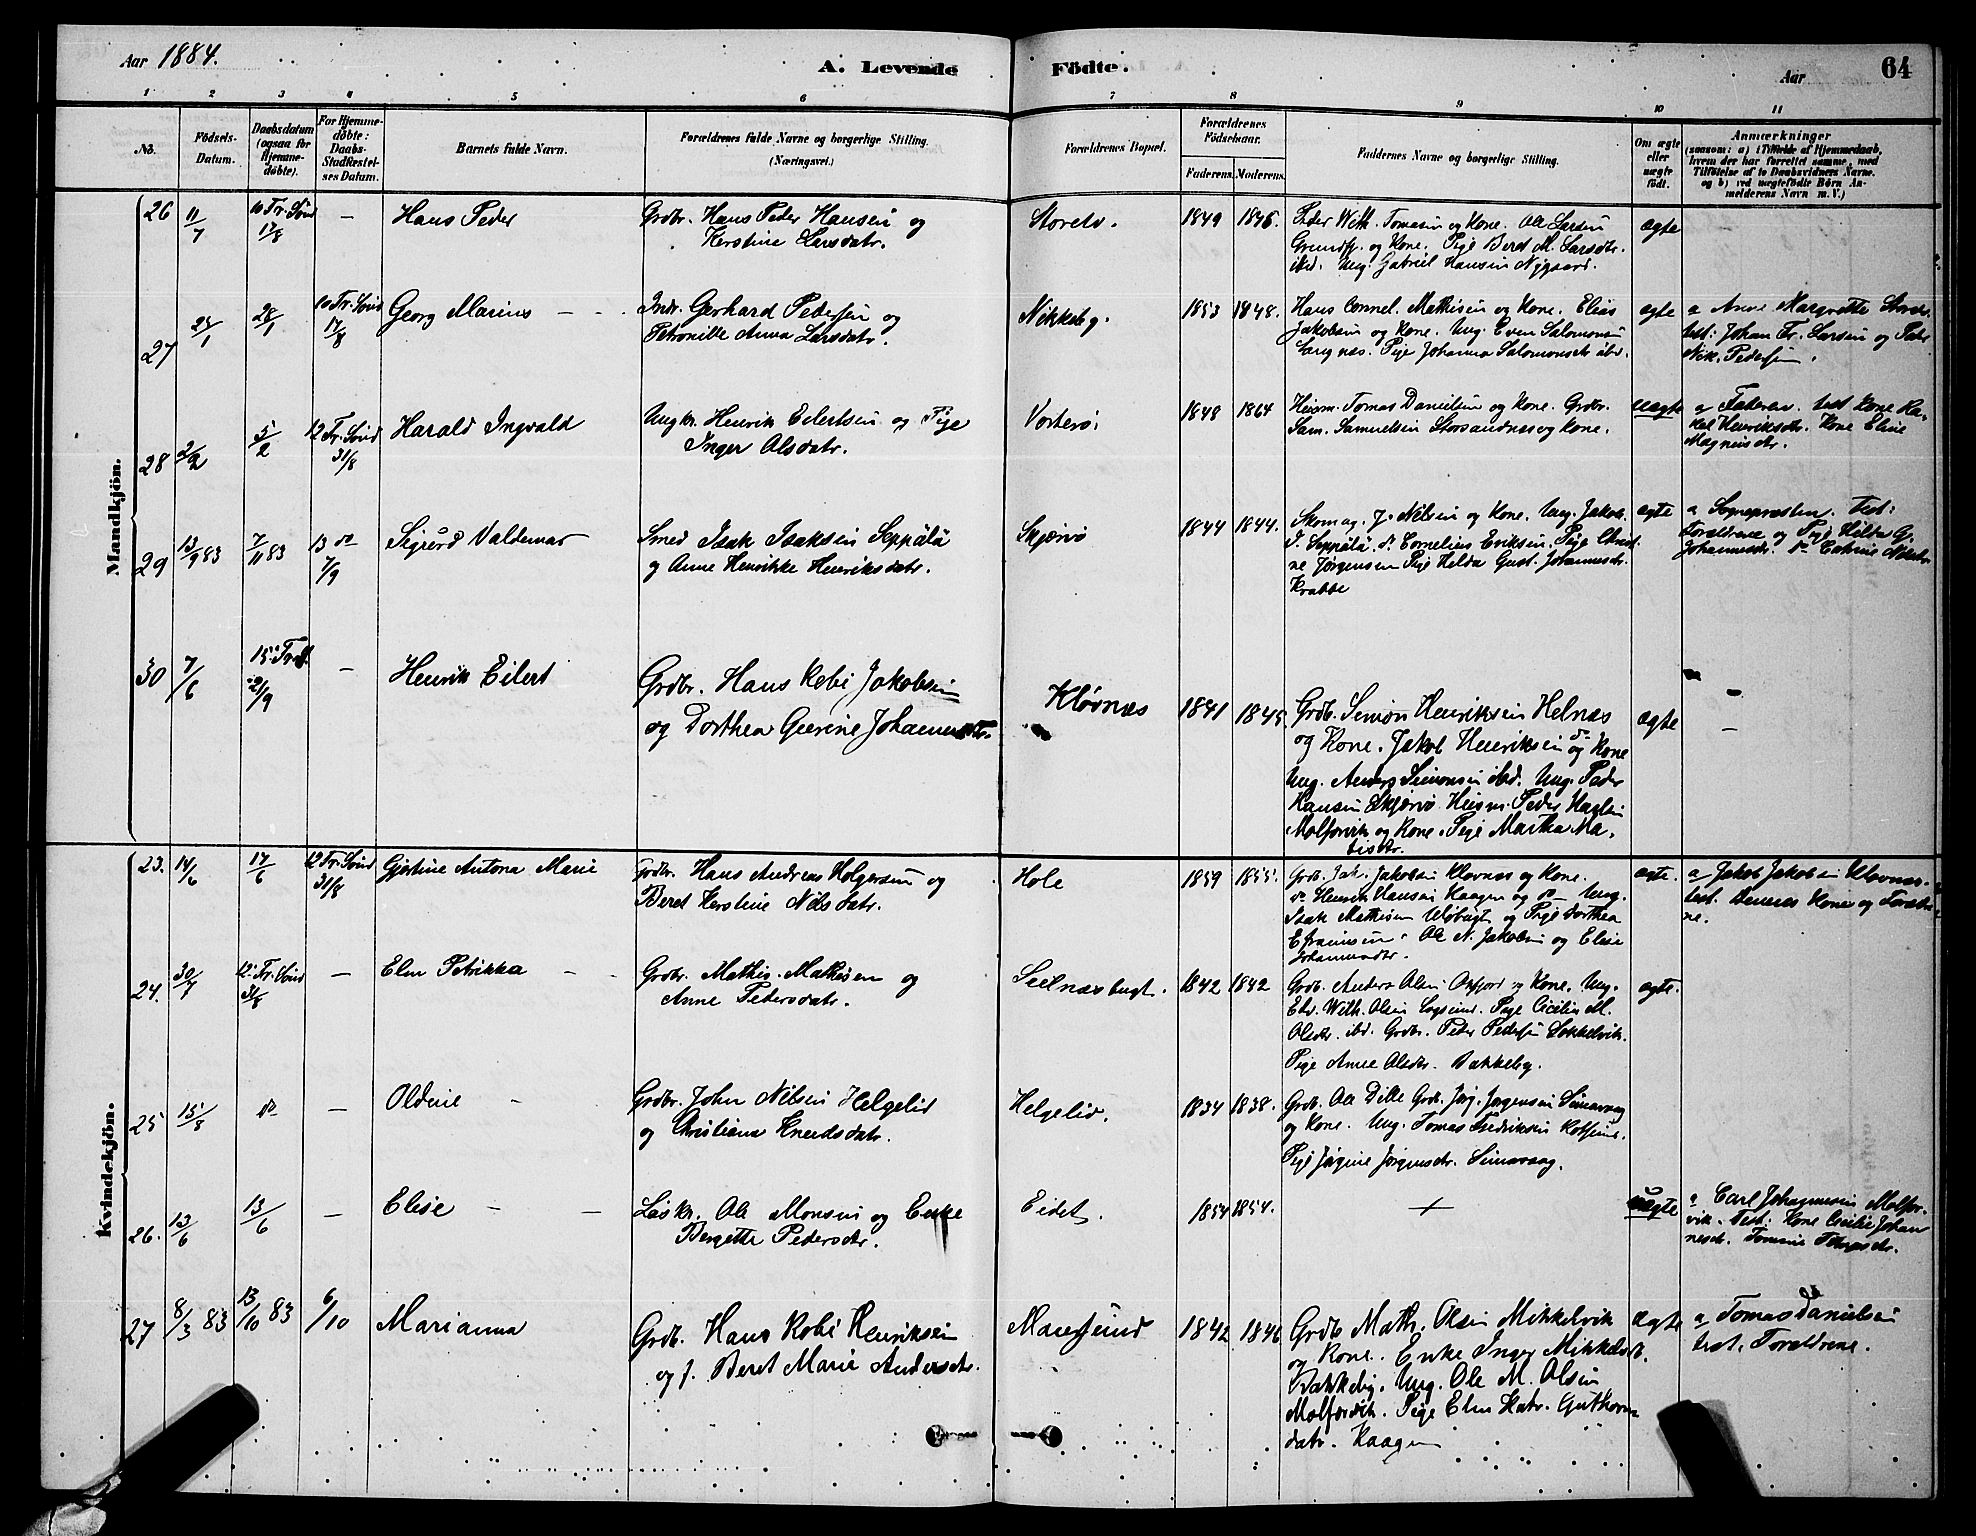 Aar 1884.
A. Levende Födte.
Aar 64
1 2 3 4 5 6 7 8 9 10 11
No. Födsels-Datum. Daabsdatum (ogsaa for Hjemmedöbte). For Hjemmedöbte: Daabs-Stadfæstelses Datum. Barnets fulde Navn. Forældrenes fulde Navne og borgerlige Stilling. (Næringsvei.) Forældrenes Bopæl. Forældrenes Födselsaar. Faderens. Moderens. Faddernes Navne og borgerlige Stilling. Om ægte eller uægte födt. Anmærkninger (saasom: a) i Tilfælde af Hjemmedaab, hvem der har forrettet samme, med Tilföielse af to Daabsvidners Navne. og b) ved uægtefödte Börn Anmelderens Navn m. V.)
Mandkjön.
26 11/7 10 Tr. Sönd 17/8 — Hans Peder Grdbr. Hans Peder Hansen og
Kerstine Larsdatr. Storelv. 1849 1846. Peder Wilh. Tomasen og Kone. Ole Larsen
Grundfj. og Kone. Pige Beret M. Larsdtr.
ibd. Ung. Gabriel Hansen Nygaard. ægte
27 25/1 28/1 10 Tr. Sönd 17/8 Georg Marius Indr. Gerhard Pedersen og
Petronille Anna Larsdatr. Nikkeby. 1853 1848. Hans Cornel. Mathisen og Kone. Elias
Jakobsen og Kone. Ung. Even Salomonsen
Langnæs. Pige Johanna Salomonsdtr ibd. ægte a Anne Margrethe
test: Johan Fr. Larsen og Petr
Nik. Pedersen.
28 2/2 5/2 12 Tr. Sönd 31/8 Harald Ingvald Ungkr. Henrik Eilertsen og Pige
Inger Olsdatr. Vorterö. 1848 1864 Husm. Tomas Danielsen og Kone. Grdbr.
Sam. Samuelsen Storsandnæs og Kone. uægte a Faderen. test Kone Ra-
kel Henriksdtr. Kone Eline
Magnusdtr.
29 13/9 83 7/11 83 13 do 7/9 Sigurd Valdemar Smed Isak Isaksen Seppälä
og Anne Henrikke Henriksdatr. Skjervö 1844 1844. Skomag. J. Nilsen og Kone. Ung. Jakob.
J. Seppälä. do Cornelius Eriksen. Pige Christi-
ne Jörgensen Pige Helda Gust. Johannesdtr.
Krabbe ægte a Sognepræsten. Test:
Forældrene og Pige Hilda G.
Johannesdtr. do Cathrine
30 7/6 15. Tr. S. 21/9 — Henrik Eilert Grdbr. Hans Robi Jakobsen
og Dorthea Gurine Johannesdtr. Klövnæs 1841 1845. Grdb. Simon Henriksen Helnæs
og Kone. Jakob Henriksen do og Kone
Ung. Anders Simonsen ibd. Ung. Peder
Hansen Skjervö. Husm. Peder
Molforvik og Kone. Pige Martha Ma-
tisdtr. ægte —
Kvindekjön.
23. 14/6 17/6 12 Tr. Sönd 31/8 Gjertine Antona Marie Grdbr. Hans Andreas Holgersen og
Beret Kerstine Nilsdatr. Hole 1859 1855. Grdb. Jak. Jakobsen Klovnæs og Kone.
do Henrik Hansen Kaagen og do Ung.
Isak Mathisen Uløbugt og Pige Dorthea
Efraimsen. Ole N. Jakobsen og Elise
Johannesdtr. ægte. a Jakob Jakobsen Klovnæs.
test. Dennes Kone og Foræld-
ne.
24. 30/7 12. Tr. Sönd 31/8 — Elen Petrikka Grdbr. Mathis Mathisen og
Anne Pedersdatr. Seilnæsbugt. 1842 1842 Grdb. Anders Olsen Oxfjord og Kone. Ung.
Edv. Wilh. Olsen Pige Cicilie M.
Olsdtr. ibd. Grdbr. Peder Pedersen
Pige Anne Olsdtr. Bakkeby. ægte.
25 15/8 do — Oldine Grdbr. John Nilsen Helgelid
og Christiana Knudsdatr. Helgelid. 1834 1838. Grdb. Ole Dille Grdb. Jörg. Jörgensen Simavaag
og Kone. Ung. Tomas Fredriksen
Pige Jörgine Jörgensdtr. Simavaag.
26. 13/6 13/6 — Elise Löskr. Ole Monsen og Enke
Bergette Pedersdtr. Eidet. 1854 1854. + uægte a Carl Johannesen Molfor-
vik. Test: Kone Cecilie Johan-
nesdtr.
27 8/3 83 13/10 83 6/10 Marianna Grdb. Hans Robi Henriksen
og f. Beret Marie Andersdtr. Maursund 1842 1846 Grdb Math. Olsen Mikkelvik
og Kone. Enke Inger Mikkelsdt.
Bakkeby. Ung. Ole M. Olsen
Molforvik. Pige Elen Katr. Guthorms-
datr. Kaagen ægte a Tomas Danielsen
test. Forældrene.